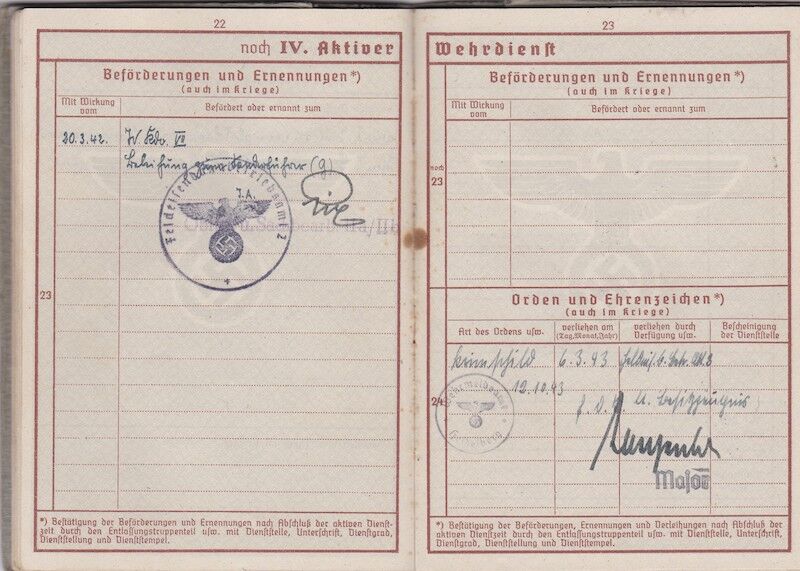 22
noch IV. Aktiver
Beförderungen und Ernennungen*)
(auch im Kriege)
Mit Wirkung vom
Befördert oder ernannt zum
20.3.42. W. Kdo. VII
Beleihung zum Sonderführer (g)
J.A.
Feldeisenbahnbetriebsamt 2
23
*) Bestätigung der Beförderungen und Ernennungen nach Abschluß der aktiven Dienst-
zeit durch den Entlassungstruppenteil usw. mit Dienststelle, Unterschrift, Dienstgrad,
Dienststellung und Dienststempel.
23
Wehrdienst
Beförderungen und Ernennungen*)
(auch im Kriege)
Mit Wirkung vom
Befördert oder ernannt zum
noch
23
Orden und Ehrenzeichen*)
(auch im Kriege)
Art des Ordens usw.
verliehen am (Tag, Monat, Jahr)
verliehen durch Verfügung usw.
Bescheinigung der Dienststelle
Krimschild 6.3.43
12.10.43
24
Wehrmeldeamt
Heidelberg
Besitzzeugnis
Major
*) Bestätigung der Beförderungen, Ernennungen und Verleihungen nach Abschluß der
aktiven Dienstzeit durch den Entlassungstruppenteil usw. mit Dienststelle, Unterschrift,
Dienstgrad, Dienststellung und Dienststempel.